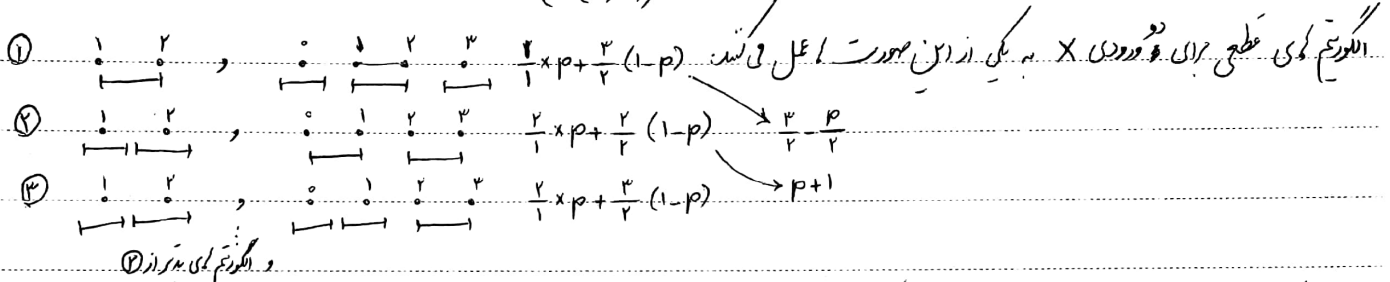 الگوریتم های قطعی برای ورودی X به یکی از این صورت ها عمل می کنند:
① ۱ ۲ , ۰ ۱ ۲ ۳ ۱/۱ × p + ۳/۲ (1-p) → ۳/۲ - p/۲
② ۱ ۲ , ۰ ۱ ۲ ۳ ۲/۱ × p + ۲/۲ (1-p) → p+1
③ ۱ ۲ , ۰ ۱ ۲ ۳ ۲/۱ × p + ۳/۲ (1-p)
و الگوریتم های بدتر از ②